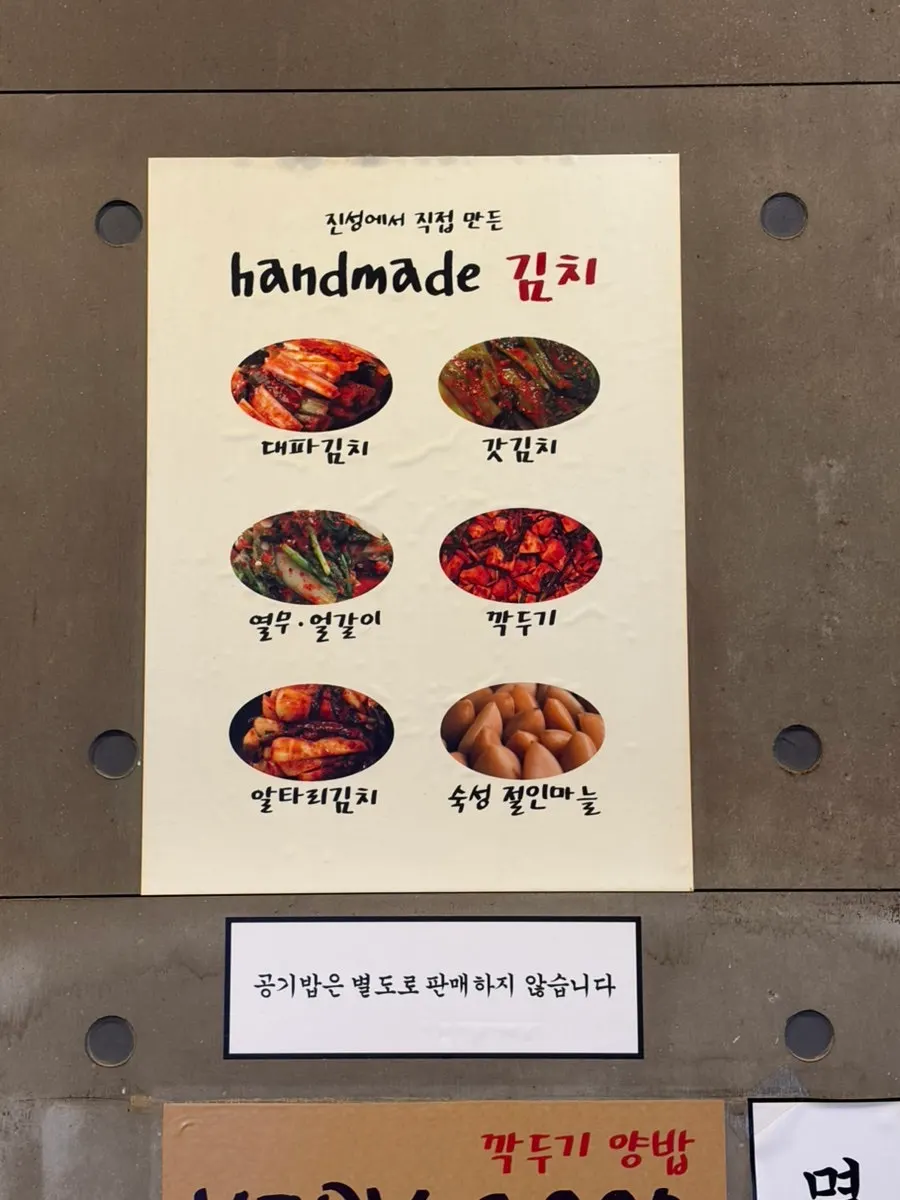 진성에서 직접 만든
handmade 김치
대파김치 갓김치
열무·얼갈이 깍두기
알타리김치 숙성 절인마늘
공기밥은 별도로 판매하지 않습니다
깍두기 양밥
면